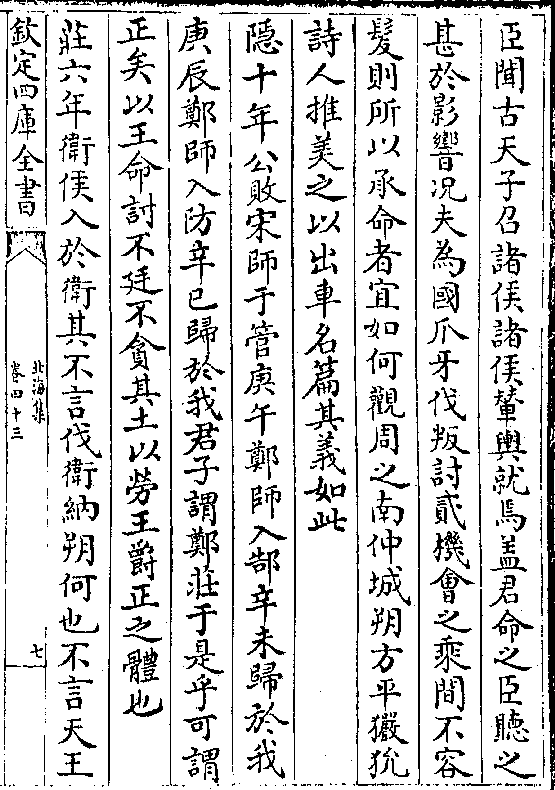 臣聞古天子召諸侯諸侯輦輿就馬盖君命之臣聽之
甚於影響况夫為國爪牙伐叛討貳機㑹之乘間不容
髮則所以承命者宜如何觀周之南仲城朔方平玁狁
詩人推美之以出車名篇其義如此
隱十年公敗宋師于管庚午鄭師入郜辛未歸於我
庚辰鄭師入防辛巳歸於我君子謂鄭莊于是乎可謂
正矣以王命討不廷不貪其土以勞王爵正之體也
莊六年衛侯入於衛其不言伐衛納朔何也不言天王
欽定四庫全書
北海集
卷四十三
七